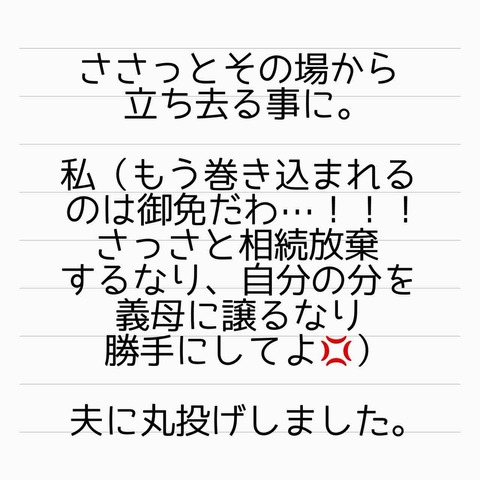 ささっとその場から
立ち去る事に。
私（もう巻き込まれる
のは御免だわ…！！！
さっさと相続放棄
するなり、自分の分を
義母に譲るなり
勝手にしてよ💢）
夫に丸投げしました。